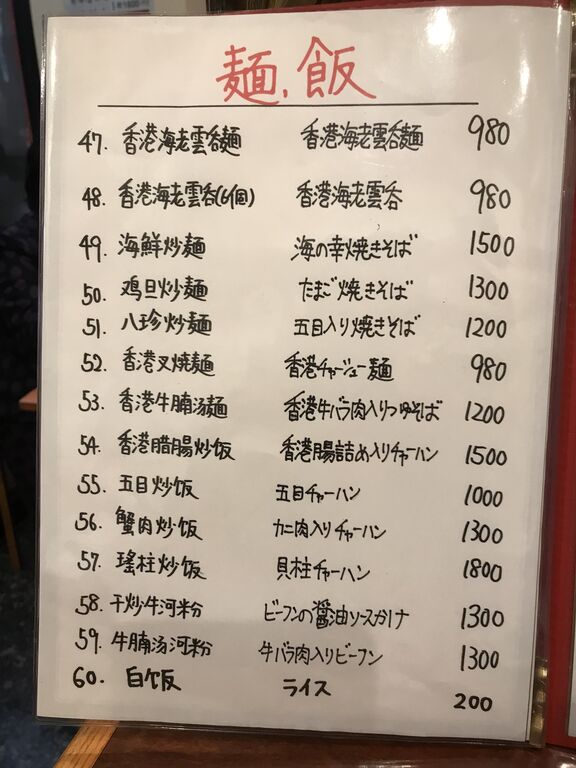 麺、飯
47. 香港海老雲呑麺 香港海老雲呑麺 980
48. 香港海老雲呑(6個) 香港海老雲呑 980
49. 海鮮炒麺 海の幸焼きそば 1500
50. 鸡旦炒麺 たまご焼きそば 1300
51. 八珍炒麺 五目入り焼きそば 1200
52. 香港叉焼麺 香港チャーシュー麺 980
53. 香港牛腩汤麺 香港牛バラ肉入りつゆそば 1200
54. 香港腊腸炒饭 香港腸詰め入りチャーハン 1500
55. 五目炒饭 五目チャーハン 1000
56. 蟹肉炒饭 カニ肉入りチャーハン 1300
57. 瑤柱炒饭 貝柱チャーハン 1800
58. 干炒牛河粉 ビーフンの醤油ソースかけ 1300
59. 牛腩汤河粉 牛バラ肉入りビーフン 1300
60. 白饭 ライス 200